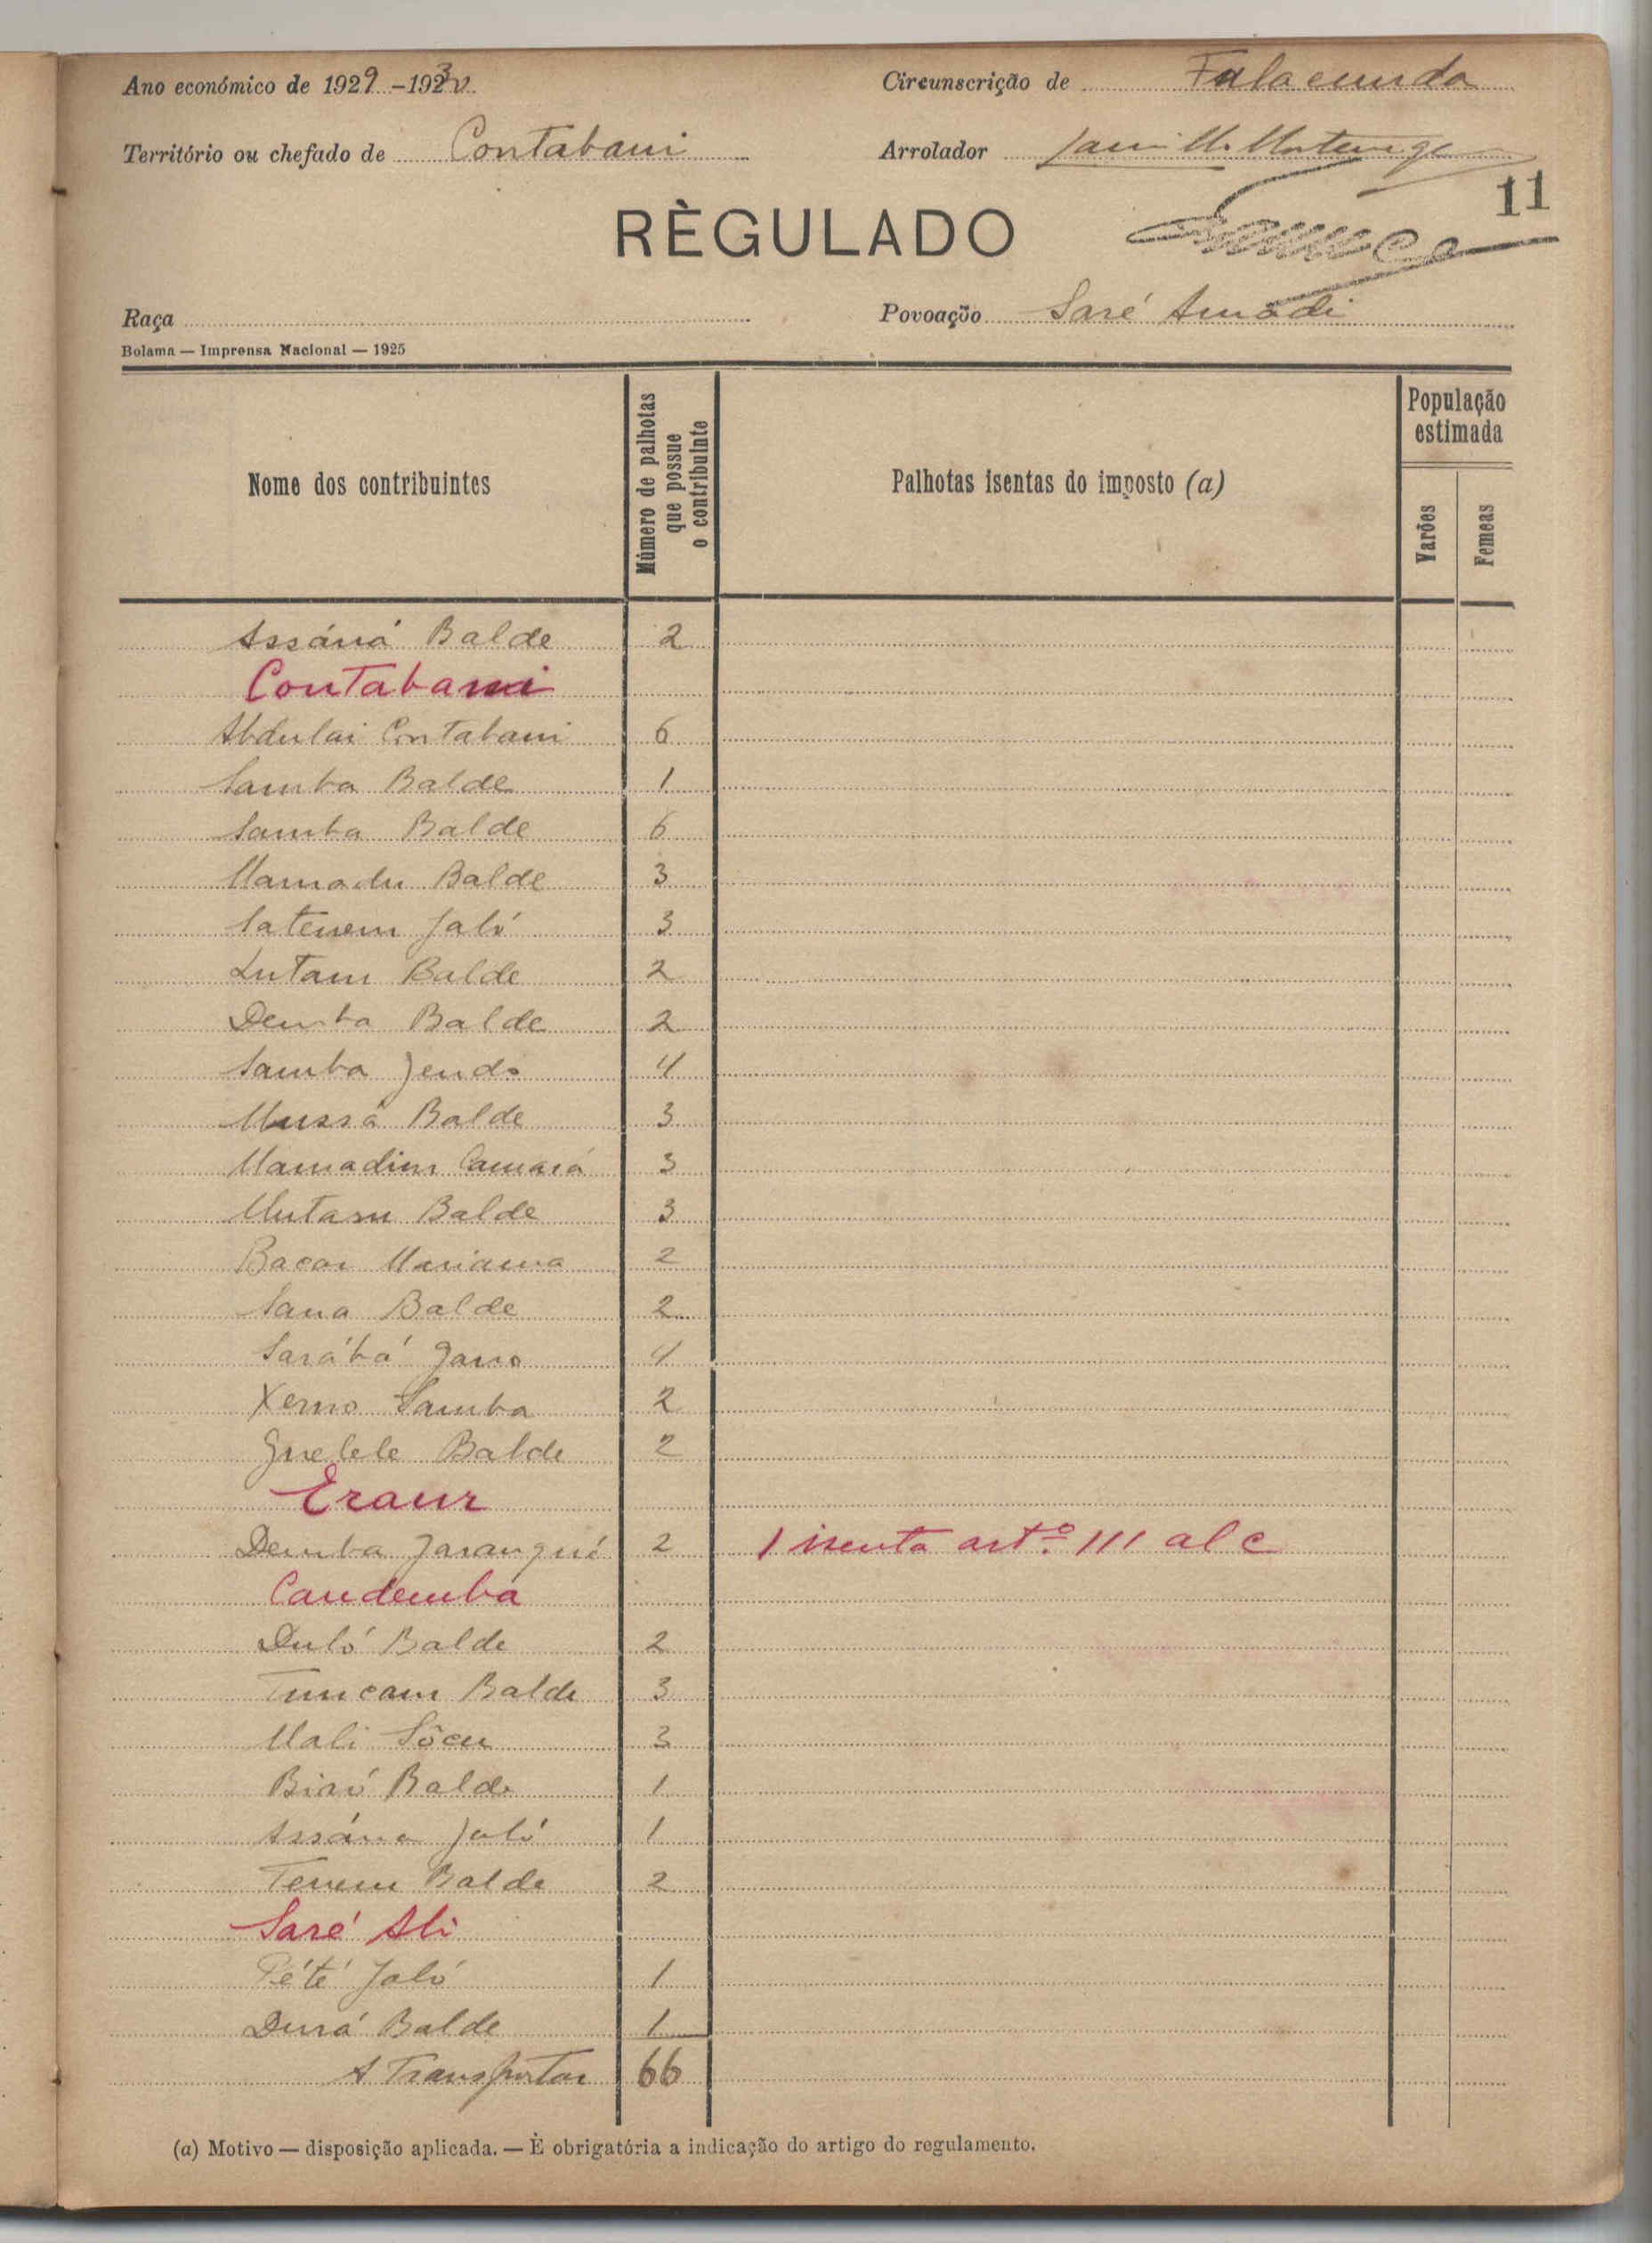 Ano económico de 1929-1930
Circunscrição de Fulacunda
Território ou chefado de Contabani
Arrolador
11
RÈGULADO
Raça
Povoação Saré Amadi
Bolama — Imprensa Nacional — 1925
Nome dos contribuintes
Número de palhotas que possue o contribuinte
Palhotas isentas do imposto (a)
População estimada
Varões
Femeas
Assáná Balde 2
Contabani
Abdulai Contabani 6
Samba Balde 1
Samba Balde 6
Mamadu Balde 3
Satenem Jaló 3
Lutam Balde 2
Demba Balde 2
Samba Jendo 4
Mussá Balde 3
Mamadim Camará 3
Mutaru Balde 3
Bacar Mariama 2
Sana Balde 2
Sarábá Jano 4
Xerno Samba 2
Guelele Balde 2
Eraur
Demba Jaranqué 2 1 isenta artº 111 al c
Candembá
Duló Balde 2
Tuncam Balde 3
Mali Sôcu 3
Biaró Balde 1
Assána Jaló 1
Tenem Balde 2
Saré Ali
Pété Jaló 1
Durá Balde 1
A Transportar 66
(a) Motivo — disposição aplicada. — È obrigatória a indicação do artigo do regulamento.